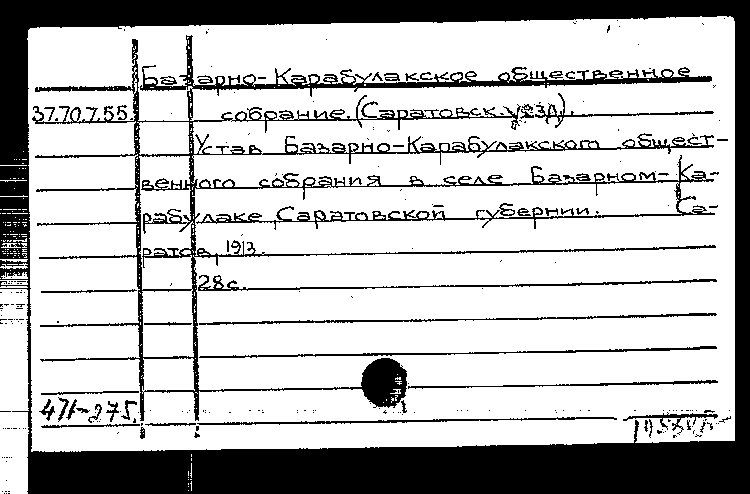 Базарно-Карабулакское общественное
37.70.7.55. собрание. (Саратовск. уезд).
Устав Базарно-Карабулакского общест-
венного собрания в селе Базарном-Ка-
рабулаке, Саратовской губернии. Са-
ратов, 1913.
28с.
471-275.